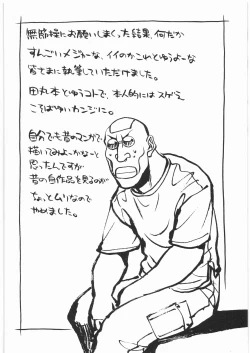 無節操にお願いしまくった結果、何だか
すんごいメジャーな、イイのかこれとゆうよーな
皆さまに執筆していただけました。
田丸本とゆうコトで、本人的にはスゲえ
こそばゆいカンジに。
自分でも昔のマンガで
描いてみよっかなーと
思ったんですが
昔の自作品を見るのが
なっとムリなので
やめました。